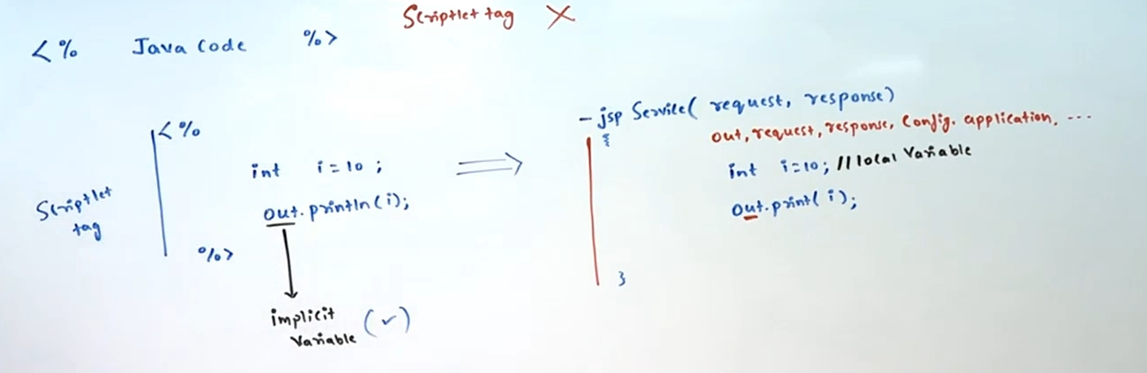 Scriptlet tag X
<% Java Code %>
Scriptlet
tag
<%
int i=10;
out.println(i);
%>
implicit
Variable (✓)
⇒
-jsp Service( request, response)
{
out, request, response, Config. application, ...
int i=10; // local Variable
out.print( i );
}